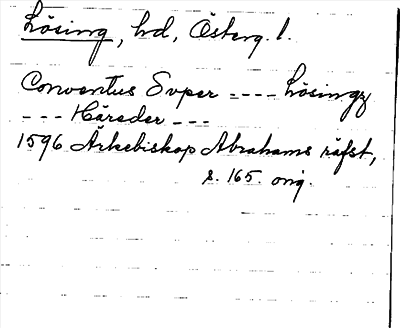 Lösing, hd, Österg. l.
Conventus Super ---- Lösingz
--- Häreder ---
1596 Ärkebiskop Abrahams räfst,
s. 165. orig.